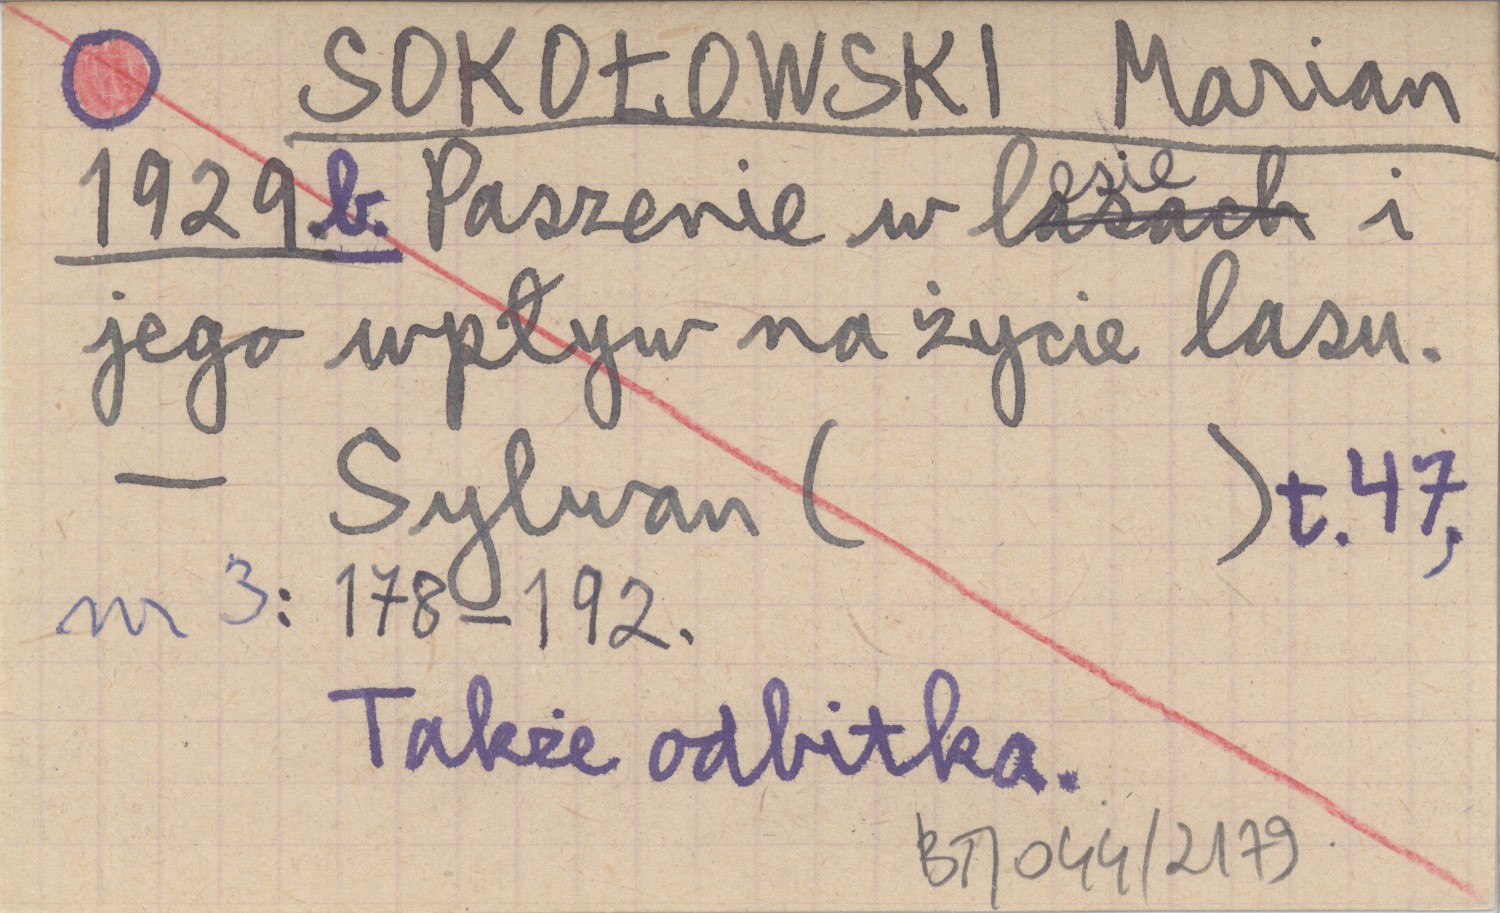 SOKOŁOWSKI Marian
1929b. Paszenie w lesie i
jego wpływ na życie lasu.
— Sylwan ( ) t. 47,
nr 3: 178–192.
Także odbitka.
BTP/044/2179